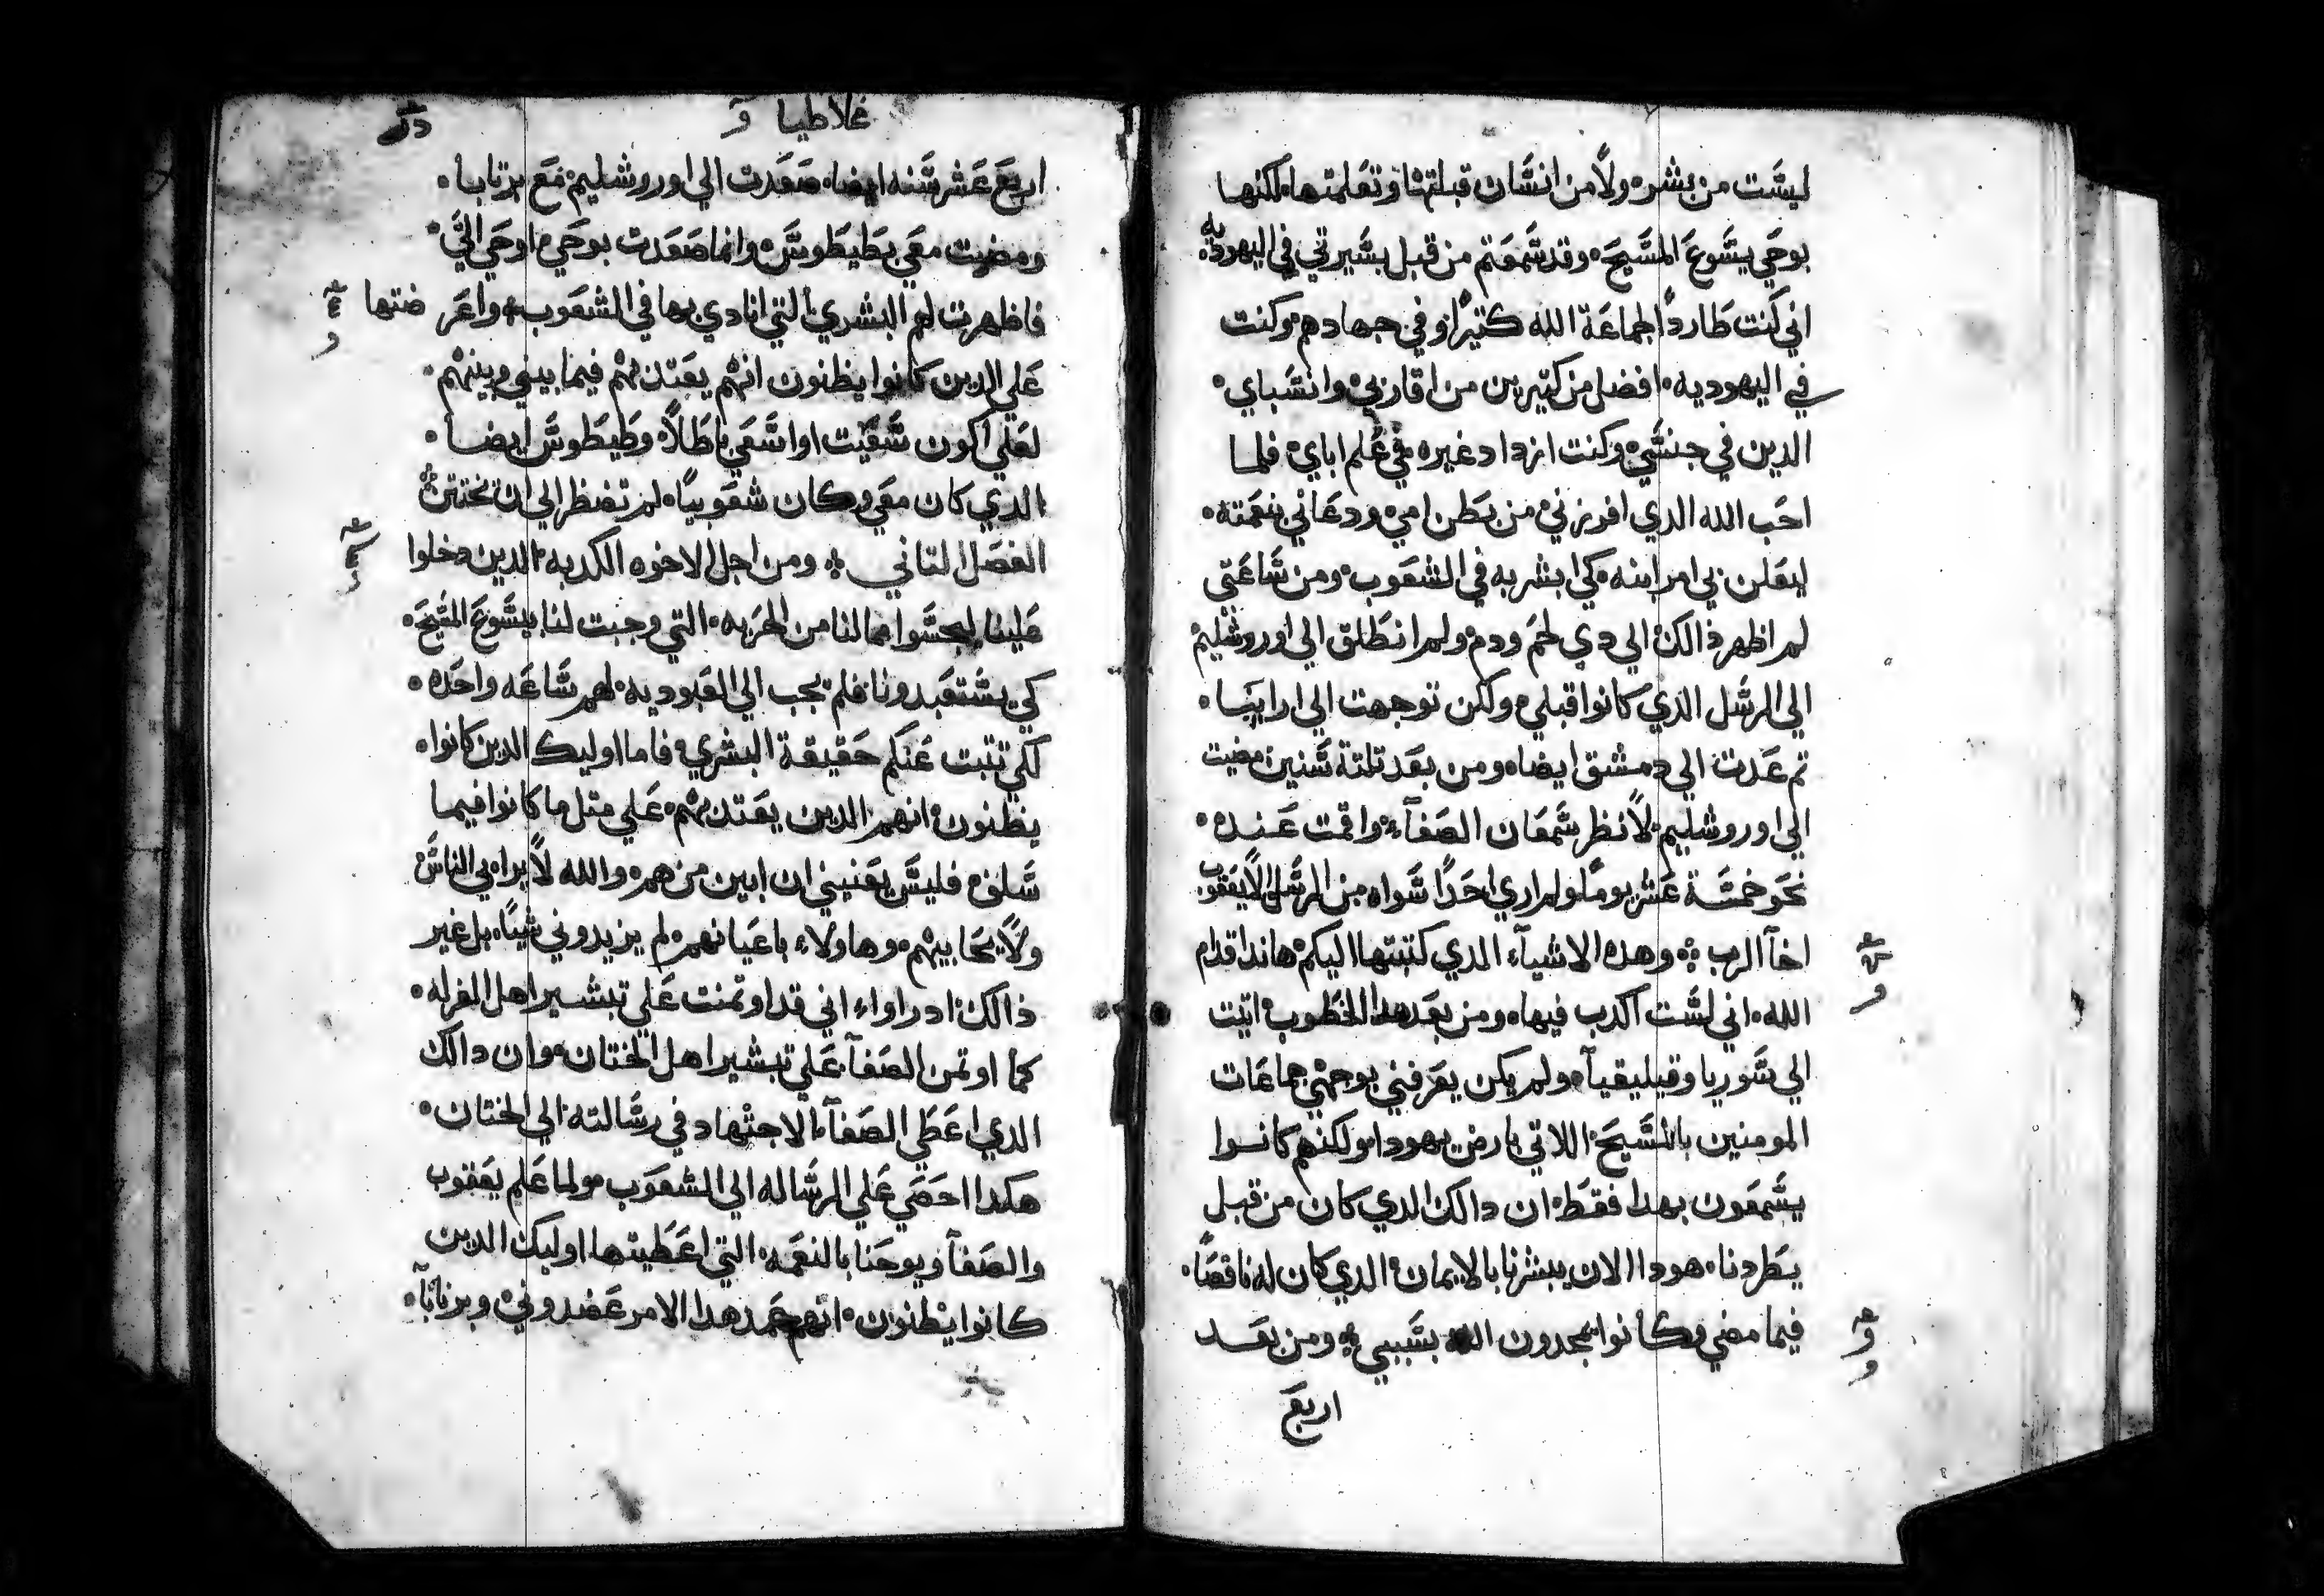 ليست من بشر ولا من انسان قبلتها وتعلمتها لكنها
بوحي يسوع المسيح وقد سمعتم من قبل بسيرتي في اليهوديه
اني كنت طاردا لجماعة الله كتيرا وفي جهادهم وكنت
في اليهوديه افضل من كتيرين من اقاربي وانسباي
الدين في جنسي وكنت ازداد غيره في علم اباي فلما
احب الله الدي افرزني من بطن امي ودعاني بنعمته
ليعلن بي امر ابنه كي ابشر به في الشعوب ومن ساعتي
لم اظهر ذالك الي دي لحم ودم ولم انطلق الي اوروشليم
الي الرسل الذي كانوا قبلي ولكن توجهت الي ارابيا
تم عدت الي دمشق ايضا ومن بعد تلتة سنين مضيت
الي اوروشليم لانظر سمعان الصفآ واقمت عنده
نحو خمسة عشر يوما ولم اري احدا سواه من الرسل الا يعقوب
اخآ الرب وهده الاشيآء الدي كتبتها اليكم هاندا قدام
الله اني لست اكدب فيها ومن بعد هدا الخطوب اتيت
الي سوريا وقيليقيآ ولم يكن يعرفني بوجهي جماعات
المومنين بالمسيح اللاتي بارض يهودا ولكنهم كانوا
يسمعون بهدا فقط ان دالك الدي كان من قبل
يطردنا هودا الان يبشرنا بالايمان الدي كان له ناقصا
فيما مضي وكانوا يمجدون الله بسببي ومن بعد
اربع
غلاطيا
اربع عشر سنه ايضا صعدت الي اوروشليم مع برنابا
ومضيت معي بطيطوس وانما صعدت بوحي اوحي الي
فاظهرت لهم البشري التي انادي بها في الشعوب واعرضتها
علي الدين كانوا يظنون انهم يعتد بهم فيما بيني وبينهم
لعلي اكون سعيت او اسعي باطلا وطيطوس ايضا
الدي كان معي وكان شعوبيا لم تضظر الي ان تختتن
الفصل التاني ومن اجل الاخوه الكدبه الدين دخلوا
علينا ليجسوا مالنا من الحريه التي وجبت لنا بيسوع المسيح
كي يستعبدونا فلم نجب الي العبوديه لهم ساعه واحده
لكي تتبت عندكم حقيقة البشري فاما اوليك الدين كانوا
يظنون انهم الدين يعتد بهم علي متل ما كانوا فيما
سلف فليس يعنيني ان ابين من هم والله لا يرايي الناس
ولا يحابيهم وهاولاء باعيانهم لم يزيدوني شيا بل غير
ذالك اد راواء اني قد اوتمنت علي تبشير اهل الغرله
كما اوتمن الصفآ علي تبشير اهل الختان وان دالك
الدي اعطي الصفآ الاجتهاد في رسالته الي الختان
هكدا احصي علي الرساله الي الشعوب ولما علم يعقوب
والصفآ ويوحنا بالنعمه التي اعطيتها اوليك الدين
كانوا يظنون انهم عمد هدا الامر عضدوني وبرنابآ